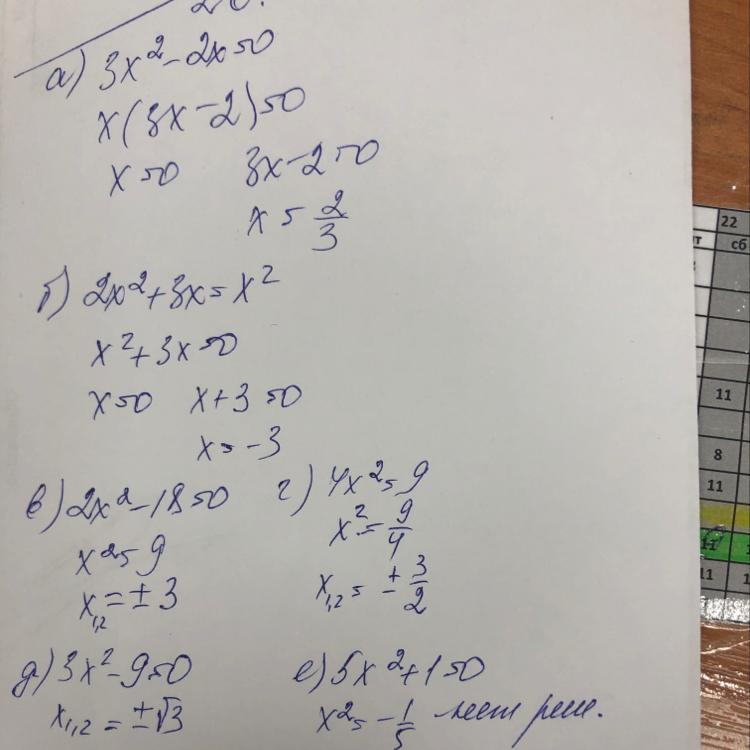 а) 3x² - 2x = 0
x(3x - 2) = 0
x = 0 3x - 2 = 0
x = 2/3
б) 2x² + 3x = x²
x² + 3x = 0
x = 0 x + 3 = 0
x = -3
в) 2x² - 18 = 0
x² = 9
x₁,₂ = ± 3
г) 4x² = 9
x² = 9/4
x₁,₂ = ± 3/2
д) 3x² - 9 = 0
x₁,₂ = ±√3
е) 5x² + 1 = 0
x² = - 1/5 нет реш.
22
сб
11
8
11
11
11